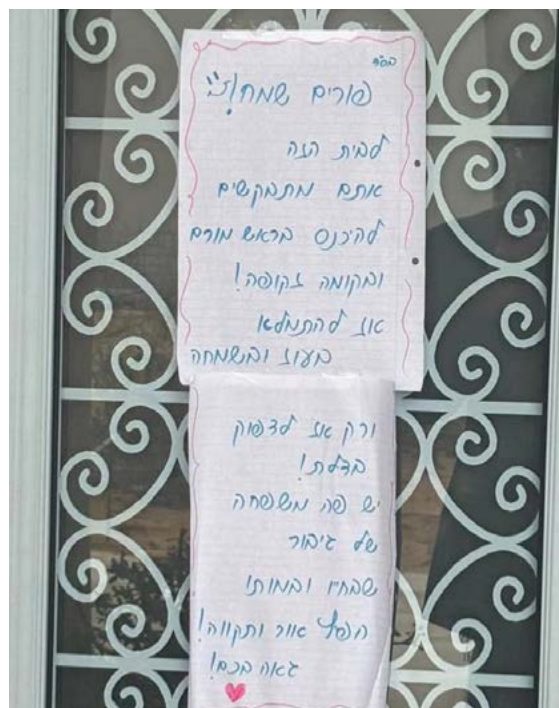 בס״ד
פורים שמח!
לבית הזה
אתם מתבקשים
להיכנס בראש מורם
ובקומה זקופה!
אז להתמלא
בעוז ובשמחה
ורק אז לדפוק
בדלת!
יש פה משפחה
של גיבור
שבחייו ובמותו
הפיץ אור ותקווה!
גאה בכם!